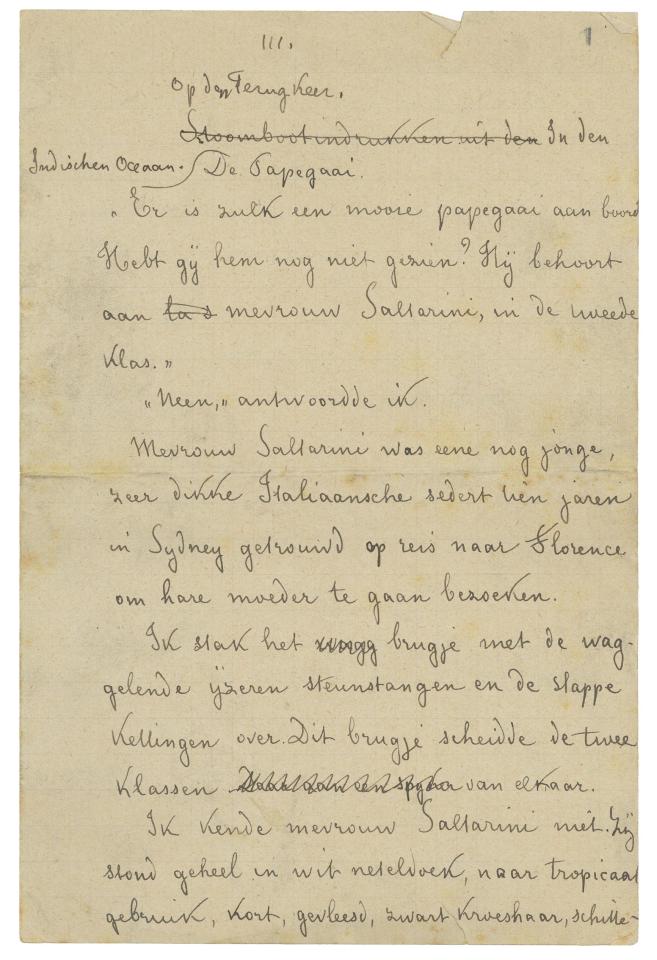 III.
1
Op den Terugkeer.
Stoombootindrukken uit den In den
Indischen Oceaan. De Papegaai.
„Er is zulk een mooie papegaai aan boord
Hebt gij hem nog niet gezien? Hij behoort
aan mevrouw Saltarini, in de tweede
klas.”
„Neen,” antwoordde ik.
Mevrouw Saltarini was eene nog jonge,
zeer dikke Italiaansche sedert tien jaren
in Sydney getrouwd op reis naar Florence
om hare moeder te gaan bezoeken.
Ik stak het brugje met de wag-
gelende ijzeren steunstangen en de slappe
kettingen over. Dit brugje scheidde de twee
klassen van elkaar.
Ik kende mevrouw Saltarini niet. Zij
stond geheel in wit neteldoek, naar tropicaal
gebruik, kort, gevleesd, zwart kroeshaar, schitte-